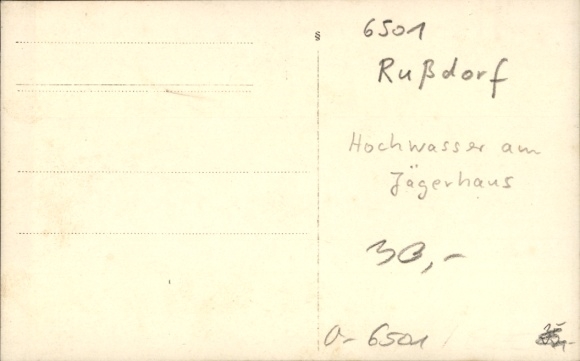 §
6501
Rußdorf
Hochwasser am
Jägerhaus
30,-
O-6501